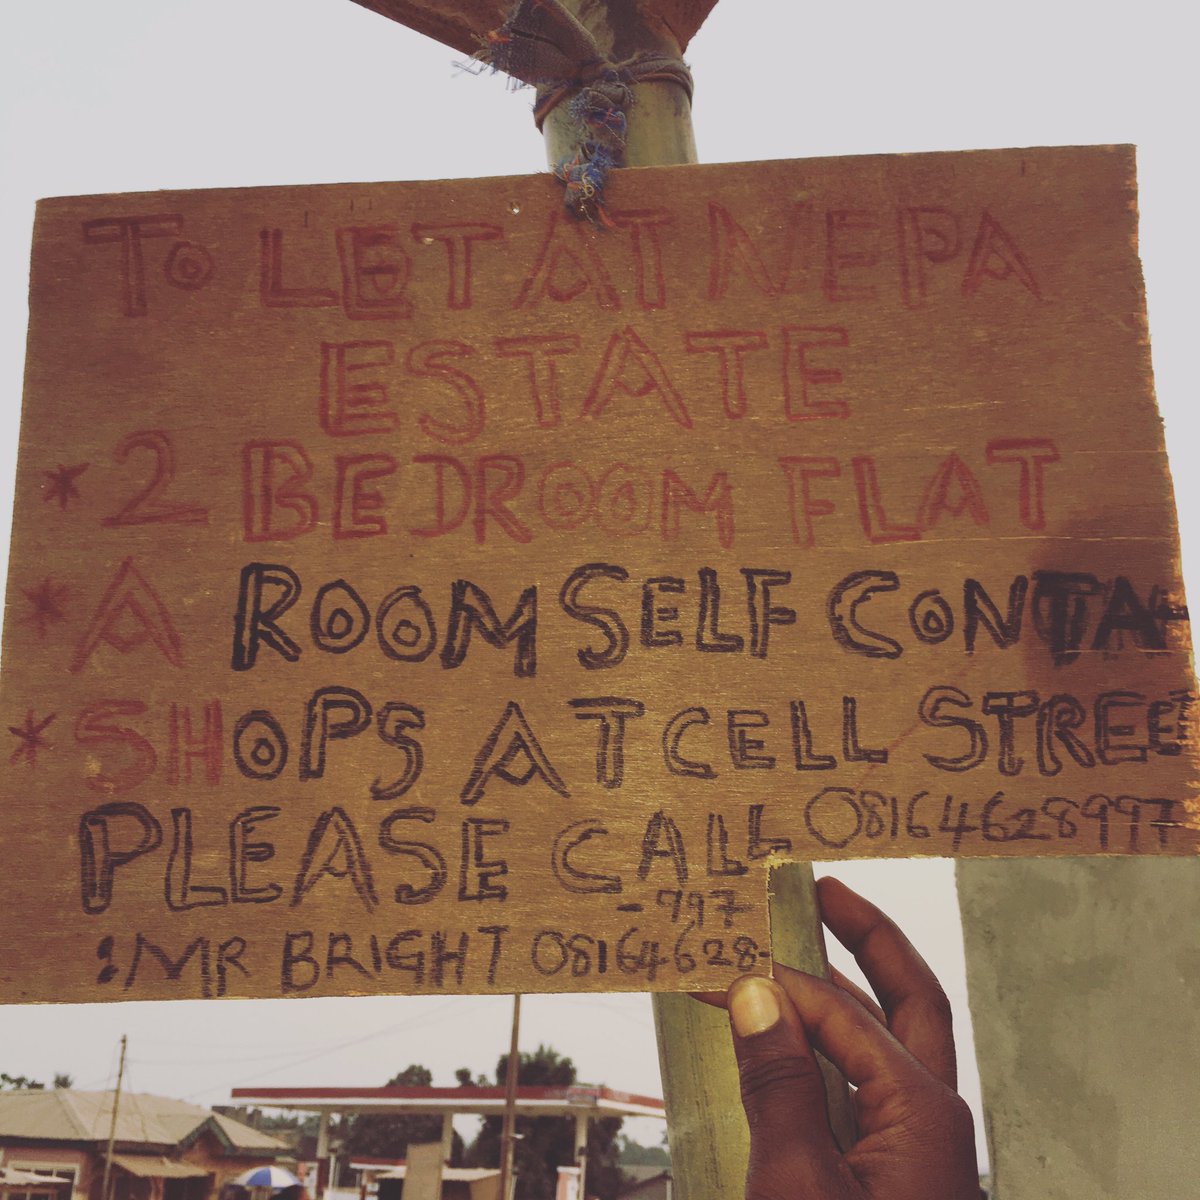 To LET AT NEPA
ESTATE
* 2 BEDROOM FLAT
* A ROOM SELF CONTA-
* SHOPS AT CELL STREET
PLEASE CALL 08164628997
-997
: MR BRIGHT 08164628-